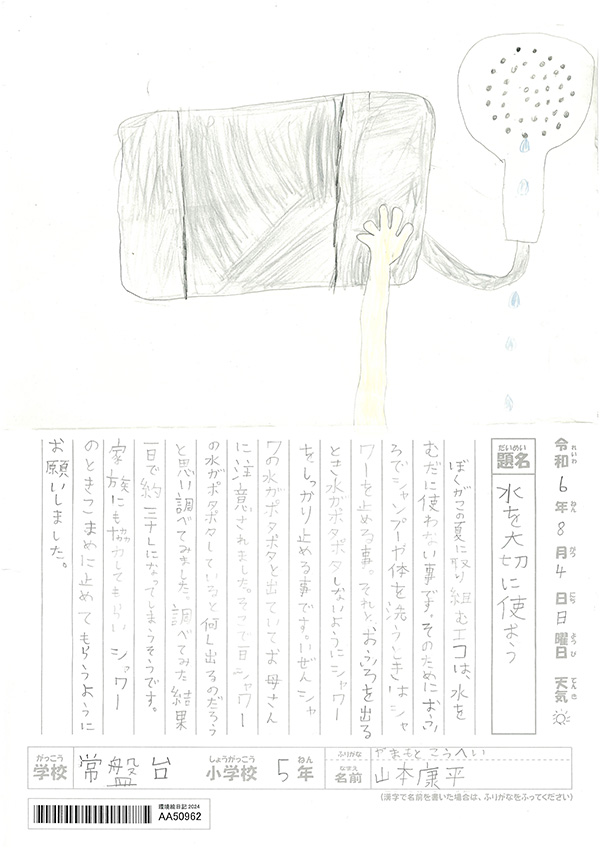 令和6年8月4日日曜日 天気
れいわ ねん がつ にち ようび てんき
だいめい
題名 水を大切に使おう
ぼくがこの夏に取り組むエコは、水を
むだに使わない事です。そのためにおふ
ろでシャンプーや体を洗うときはシャ
ワーを止める事。それと、おふろを出る
とき水がポタポタしないようにシャワー
をしっかり止める事です。いぜんシャ
ワの水がポタポタと出ていてお母さん
に注意されました。そこで一日シャワー
の水がポタポタしていると何L出るのだろう
と思い調べてみました。調べてみた結果
一日で約三十Lになってしまうそうです。
家族にも協力してもらい シャワー
のときこまめに止めてもらうように
お願いしました。
がっこう しょうがっこう ねん
学校 常盤台 小学校 5年
ふりがな やまもと こうへい
なまえ
名前 山本康平
(漢字で名前を書いた場合は、ふりがなをふってください)
環境絵日記2024
AA50962